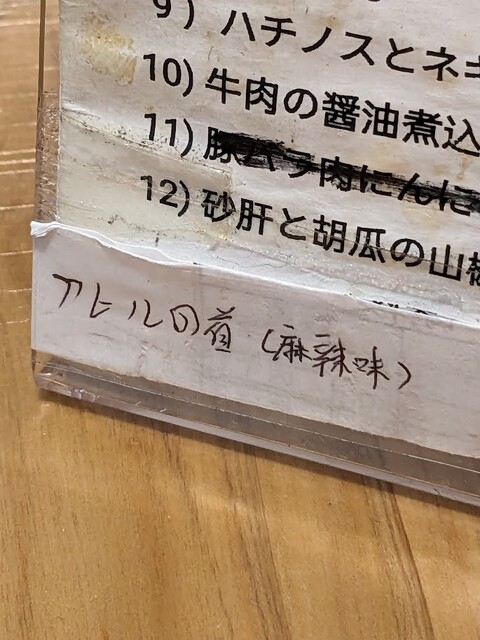 9) ハチノスとネギ
10) 牛肉の醤油煮込
11) 豚バラ肉にんに
12) 砂肝と胡瓜の山椒
アヒルの首 (麻辣味)